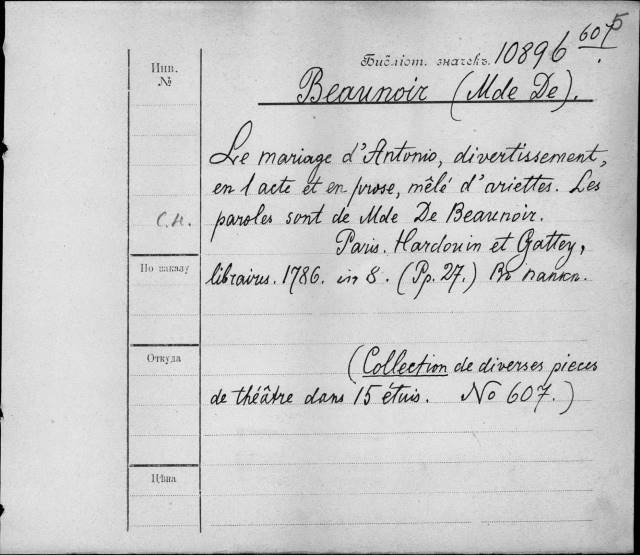 607⁵
Библіот. значекъ. 10896
Инв.
№
Beaunoir (Mde De).
Le mariage d'Antonio, divertissement,
en 1 acte et en prose, mêlé d'ariettes. Les
С.Н. paroles sont de Mde De Beaunoir.
Paris. Hardouin et Gattey,
По заказу
libraires. 1786. in 8. (Pp. 27.) Въ папкѣ.
Откуда
(Collection de diverses pieces
de théâtre dans 15 étuis. No 607.)
Цѣна